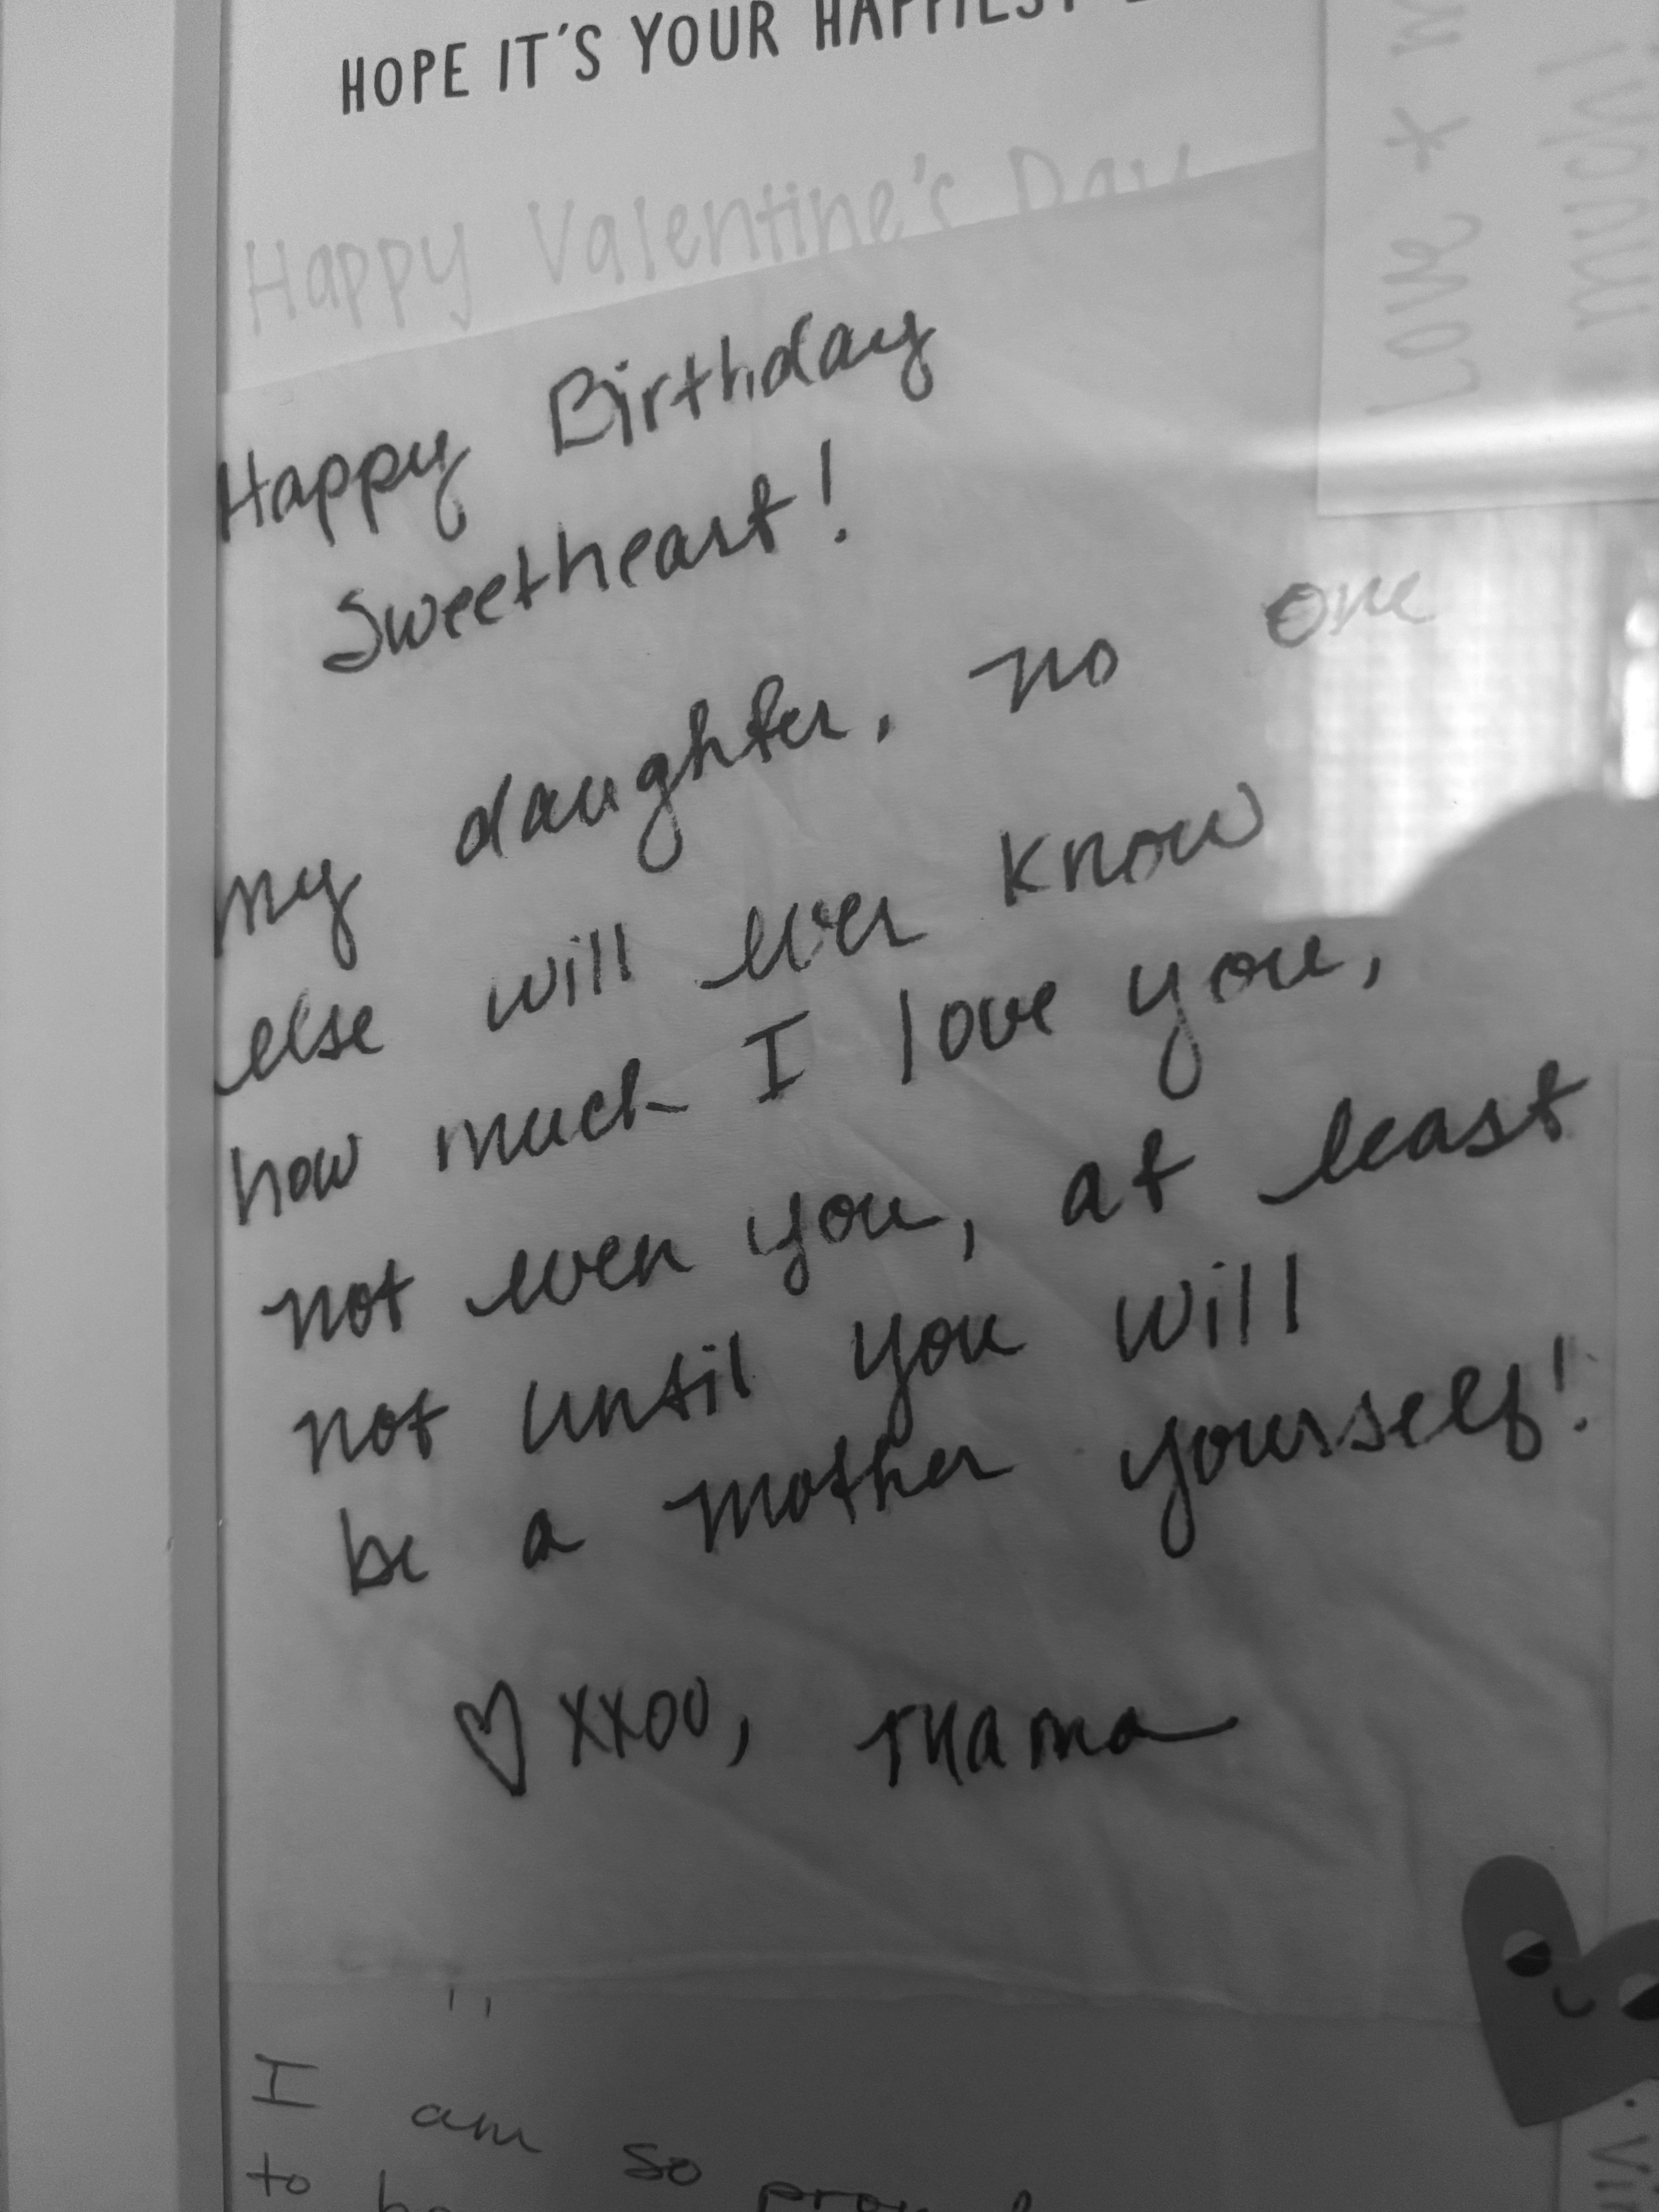 HOPE IT'S YOUR HAPPIEST
Happy Valentine's Day
Love *
much!
Happy Birthday
Sweetheart!
my daughter, no one
else will ever know
how much I love you,
not even you, at least
not until you will
be a mother yourself!
♡ xxoo, Mama
I am so
to